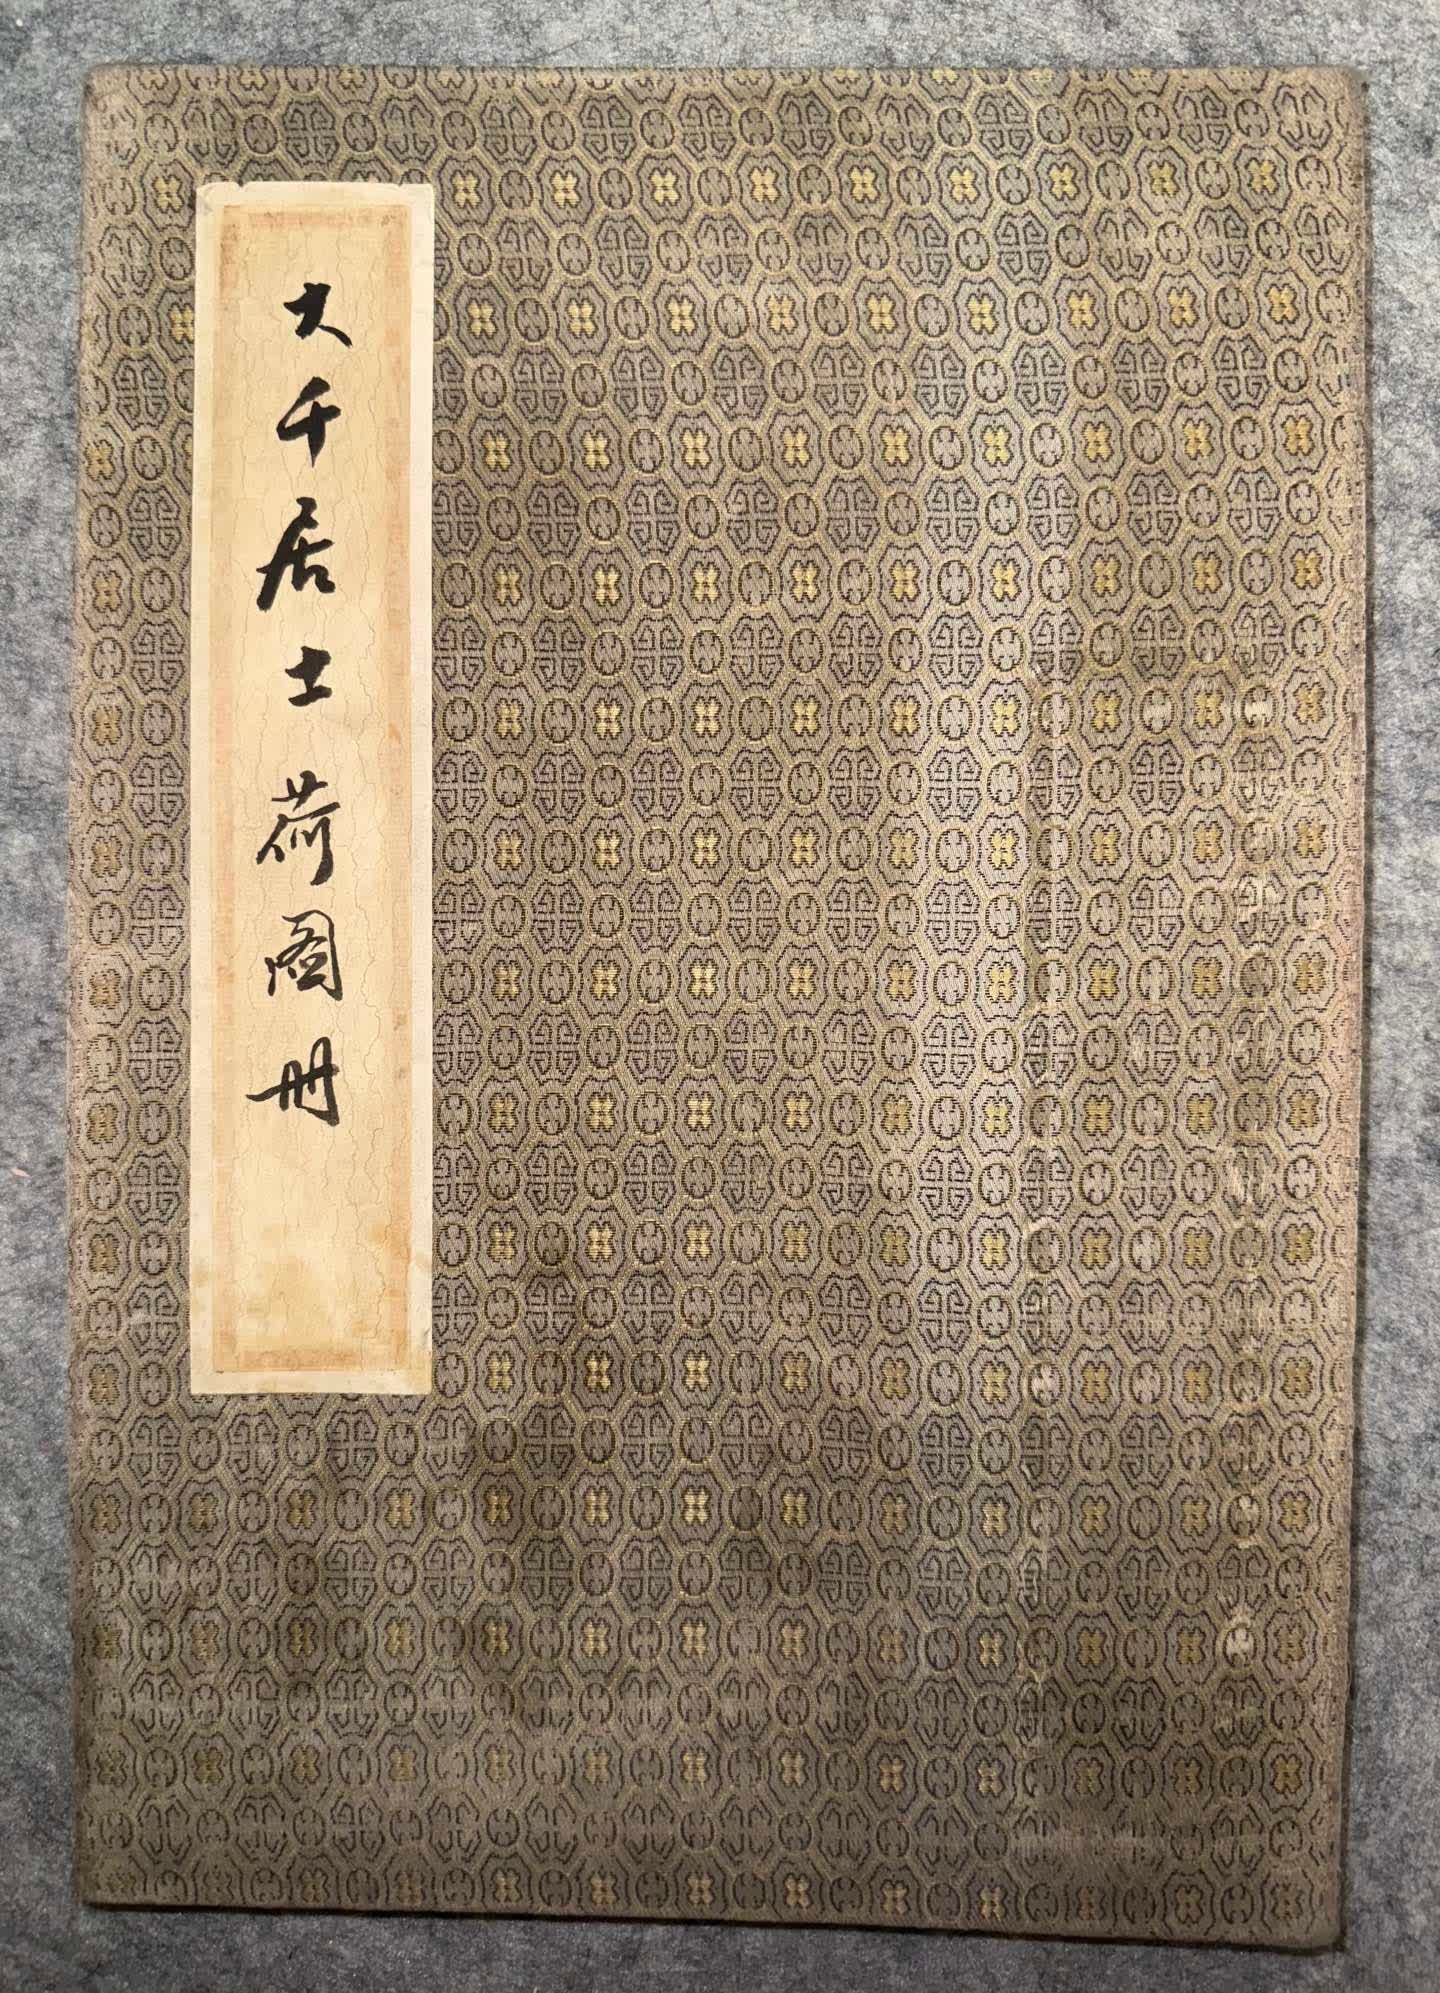 大千居士荷图册